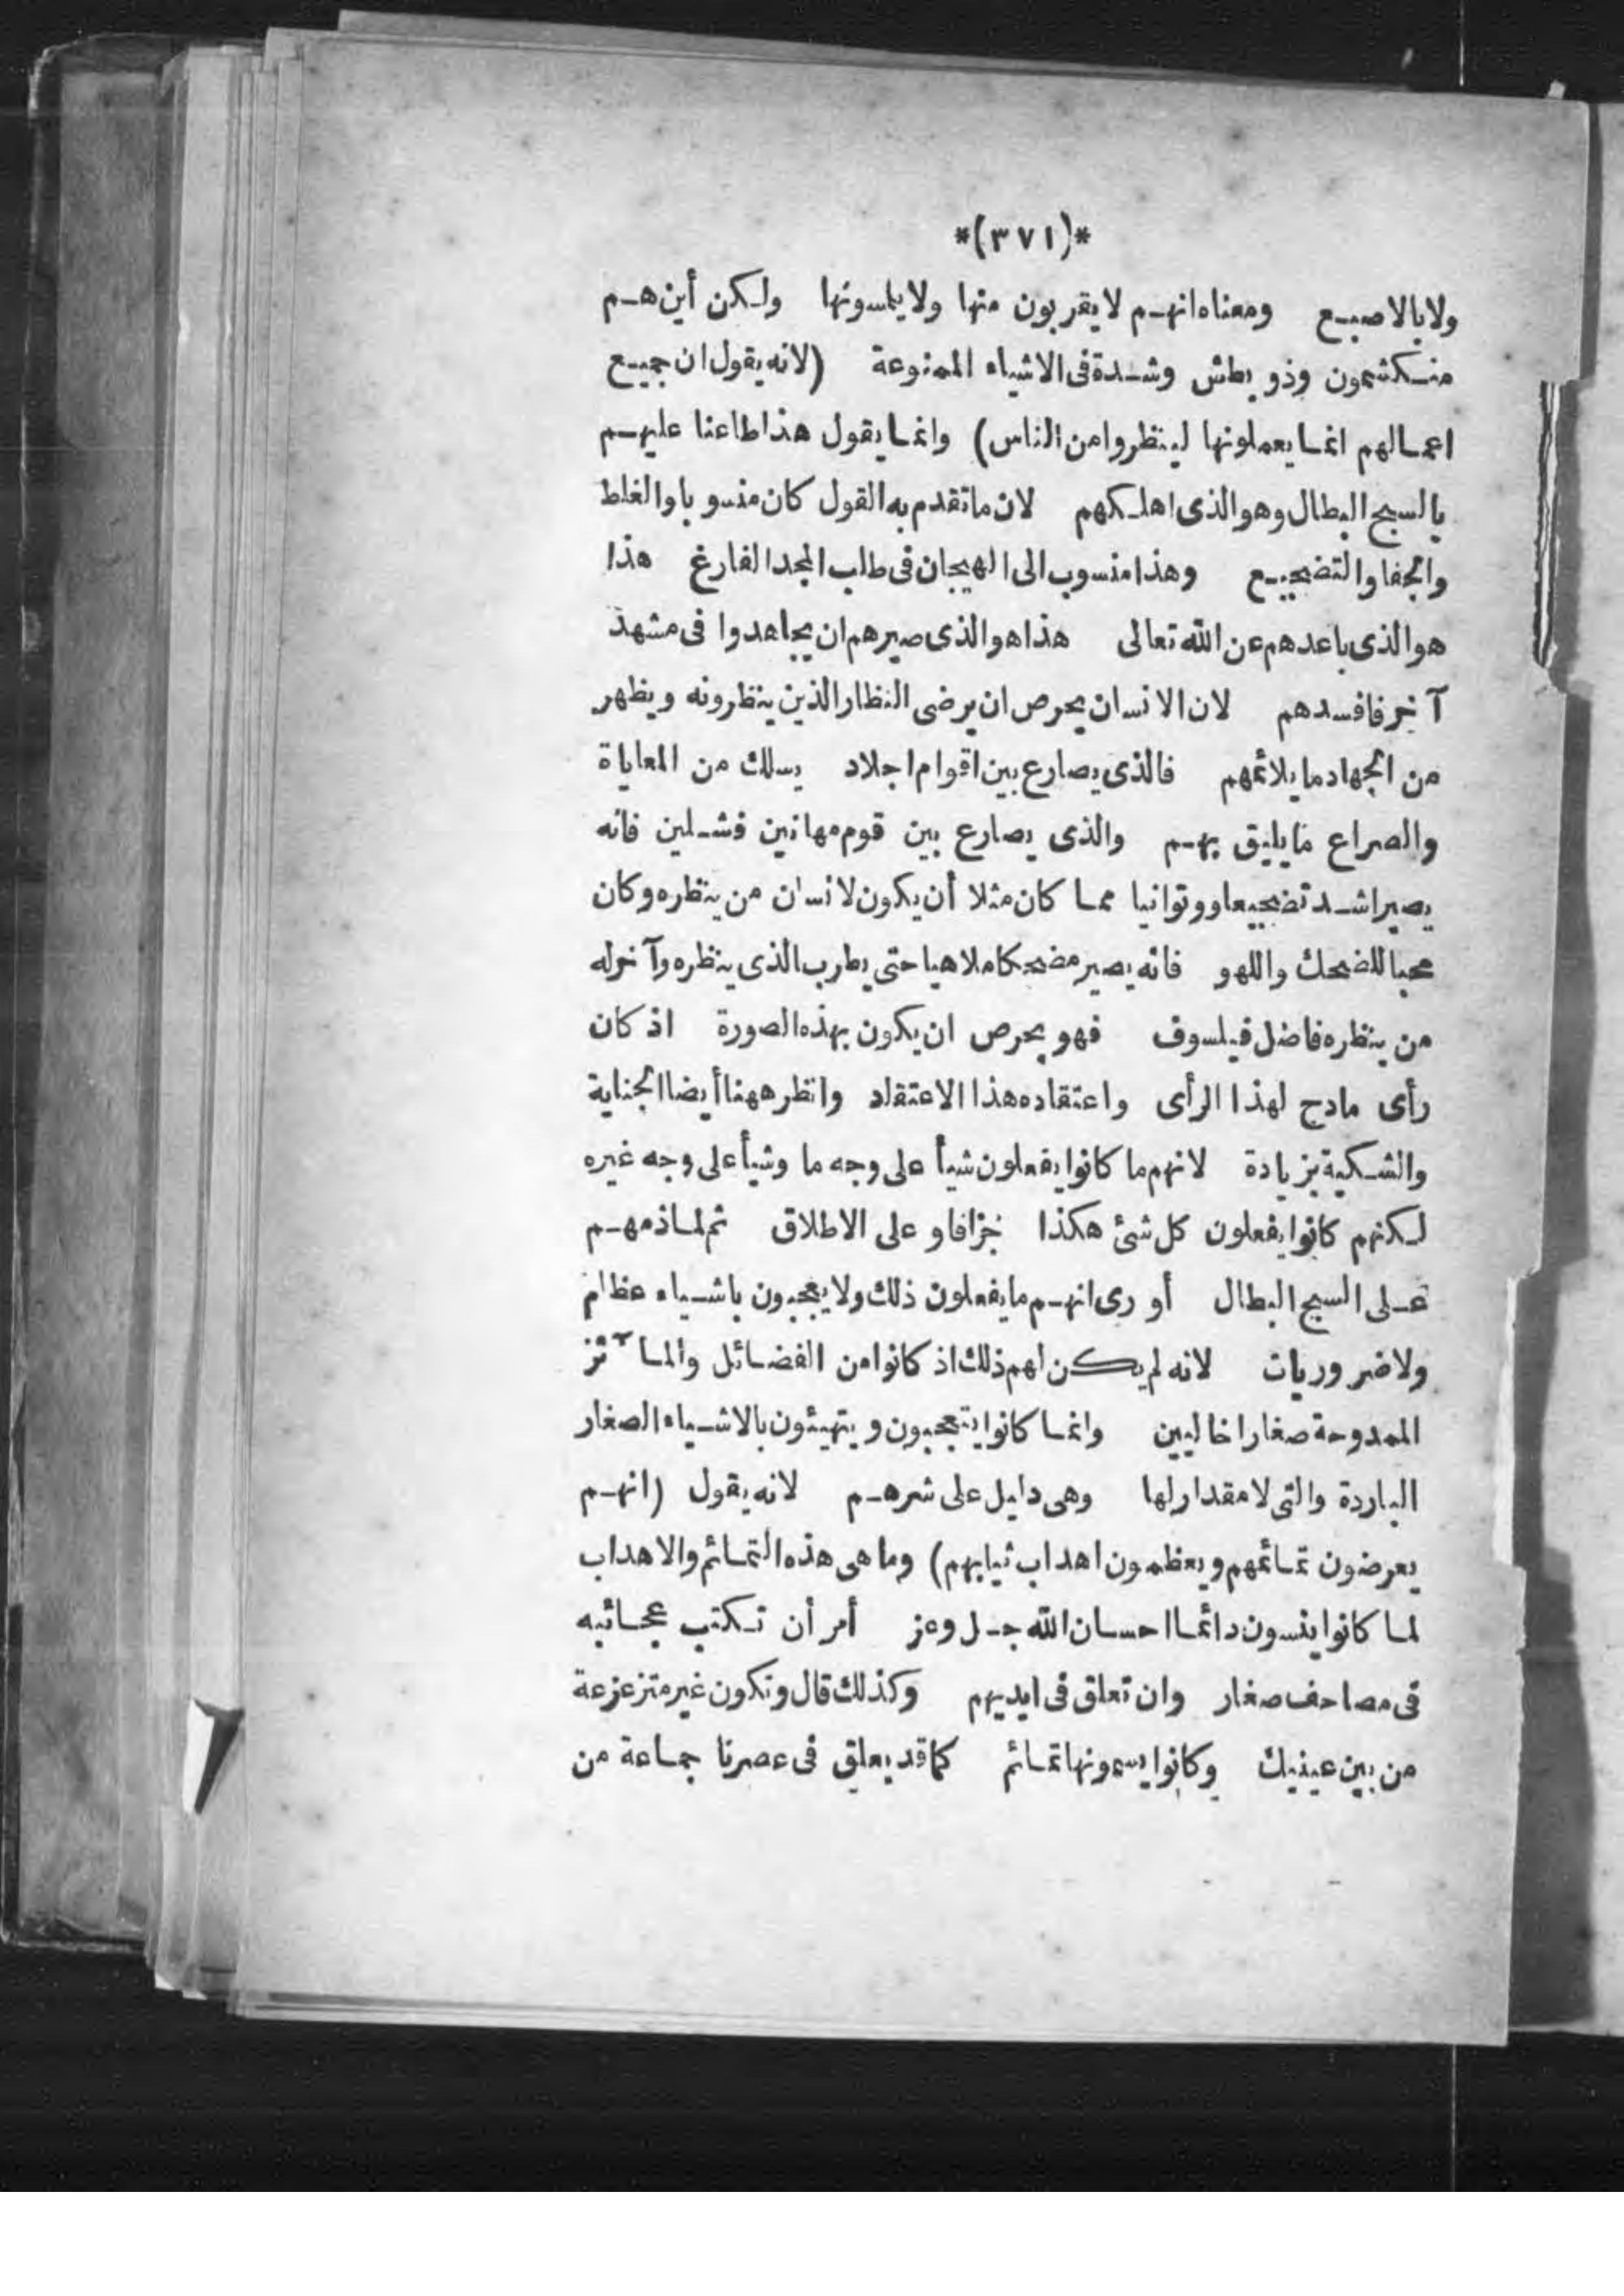 *(٣٧١)*
ولا بالاصبع ومعناه انهم لا يقربون منها ولا يلمسونها ولكن أين هم
منكشمون وذو بطش وشدة فى الاشياء الممنوعة (لانه يقول ان جميع
اعمالهم انما يعملونها لينظروا من الناس) وانما يقول هذا طاعنا عليهم
بالسبح البطال وهو الذى اهلكهم لان ما تقدم به القول كان منسوبا والغلط
والجفا والتضجيع وهذا منسوب الى الهيجان فى طلب المجد الفارغ هذا
هو الذى باعدهم عن الله تعالى هذا هو الذى صيرهم ان يجاهدوا فى مشهد
آخر فافسدهم لان الانسان يحرص ان يرضى النظار الذين ينظرونه ويظهر
من الجهاد ما يلائمهم فالذى يصارع بين اقوام اجلاد يسلك من المعاياة
والصراع ما يليق بهم والذى يصارع بين قوم مهانين فشلين فانه
يصير اشد تضجيعا ووتوانيا مما كان مثلا أن يكون لانسان من ينظره وكان
محبا للضحك واللهو فانه يصير مضحكا ملاهيا حتى يطرب الذى ينظره وآخر له
من ينظره فاضل فيلسوف فهو يحرص ان يكون بهذه الصورة اذ كان
رأى مادح لهذا الرأى واعتقاده هذا الاعتقاد وانظر ههنا أيضا الجناية
والشكية بزيادة لانهم ما كانوا يفعلون شيأ على وجه ما وشيأ على وجه غيره
لكنهم كانوا يفعلون كل شئ هكذا جزافا و على الاطلاق ثم لما ذمهم
على السبح البطال أورى انهم ما يفعلون ذلك ولا يعجبون باشياء عظام
ولا ضروريات لانه لم يكن لهم ذلك اذ كانوا من الفضائل والمآثر
الممدوحة صغارا خاليين وانما كانوا يتعجبون و يتهيئون بالاشياء الصغار
الباردة والتى لا مقدار لها وهى دليل على شرهم لانه يقول (انهم
يعرضون تمائمهم ويعظمون اهداب ثيابهم) وما هى هذه التمائم والاهداب
لما كانوا ينسون دائما احسان الله جل وعز أمر أن تكتب عجائبه
فى مصاحف صغار وان تعلق فى ايديهم وكذلك قال وتكون غير متزعزعة
من بين عينيك وكانوا يسمونها تمائم كما قد يعلق فى عصرنا جماعة من